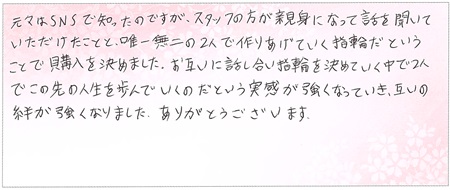 元々はSNSで知ったのですが、スタッフの方が親身になって話を聞いて
いただけたことと、唯一無二の2人で作りあげていく指輪だという
ことで購入を決めました。お互いに話し合い指輪を決めていく中で2人
でこの先の人生を歩んでいくのだという実感が強くなっていき、互いの
絆が強くなりました。ありがとうございます。